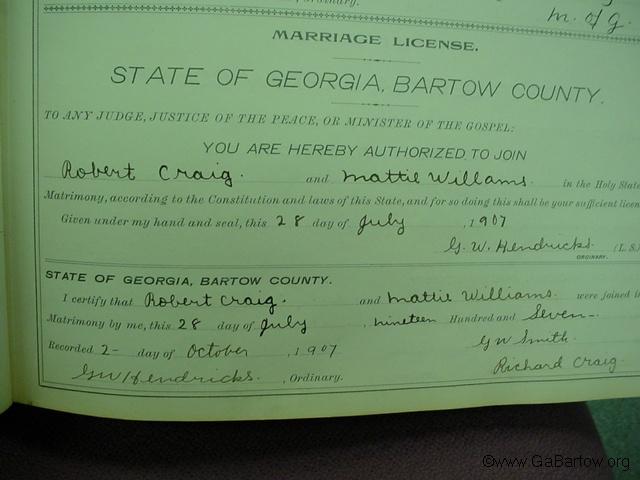 , Ordinary.
M. of G.
MARRIAGE LICENSE.
STATE OF GEORGIA, BARTOW COUNTY.
TO ANY JUDGE, JUSTICE OF THE PEACE, OR MINISTER OF THE GOSPEL:
YOU ARE HEREBY AUTHORIZED TO JOIN
Robert Craig. and Mattie Willams. in the Holy State
Matrimony, according to the Constitution and laws of this State, and for so doing this shall be your sufficient licen
Given under my hand and seal, this 28 day of July , 1907
G. W. Hendricks. (L. S.
ORDINARY.
STATE OF GEORGIA, BARTOW COUNTY.
I certify that Robert Craig. and Mattie Williams. were joined in
Matrimony by me, this 28 day of July , nineteen Hundred and Seven-.
Recorded 2- day of October , 1907
GW Smith.
GW Hendricks. , Ordinary.
Richard Craig.
©www.GaBartow.org